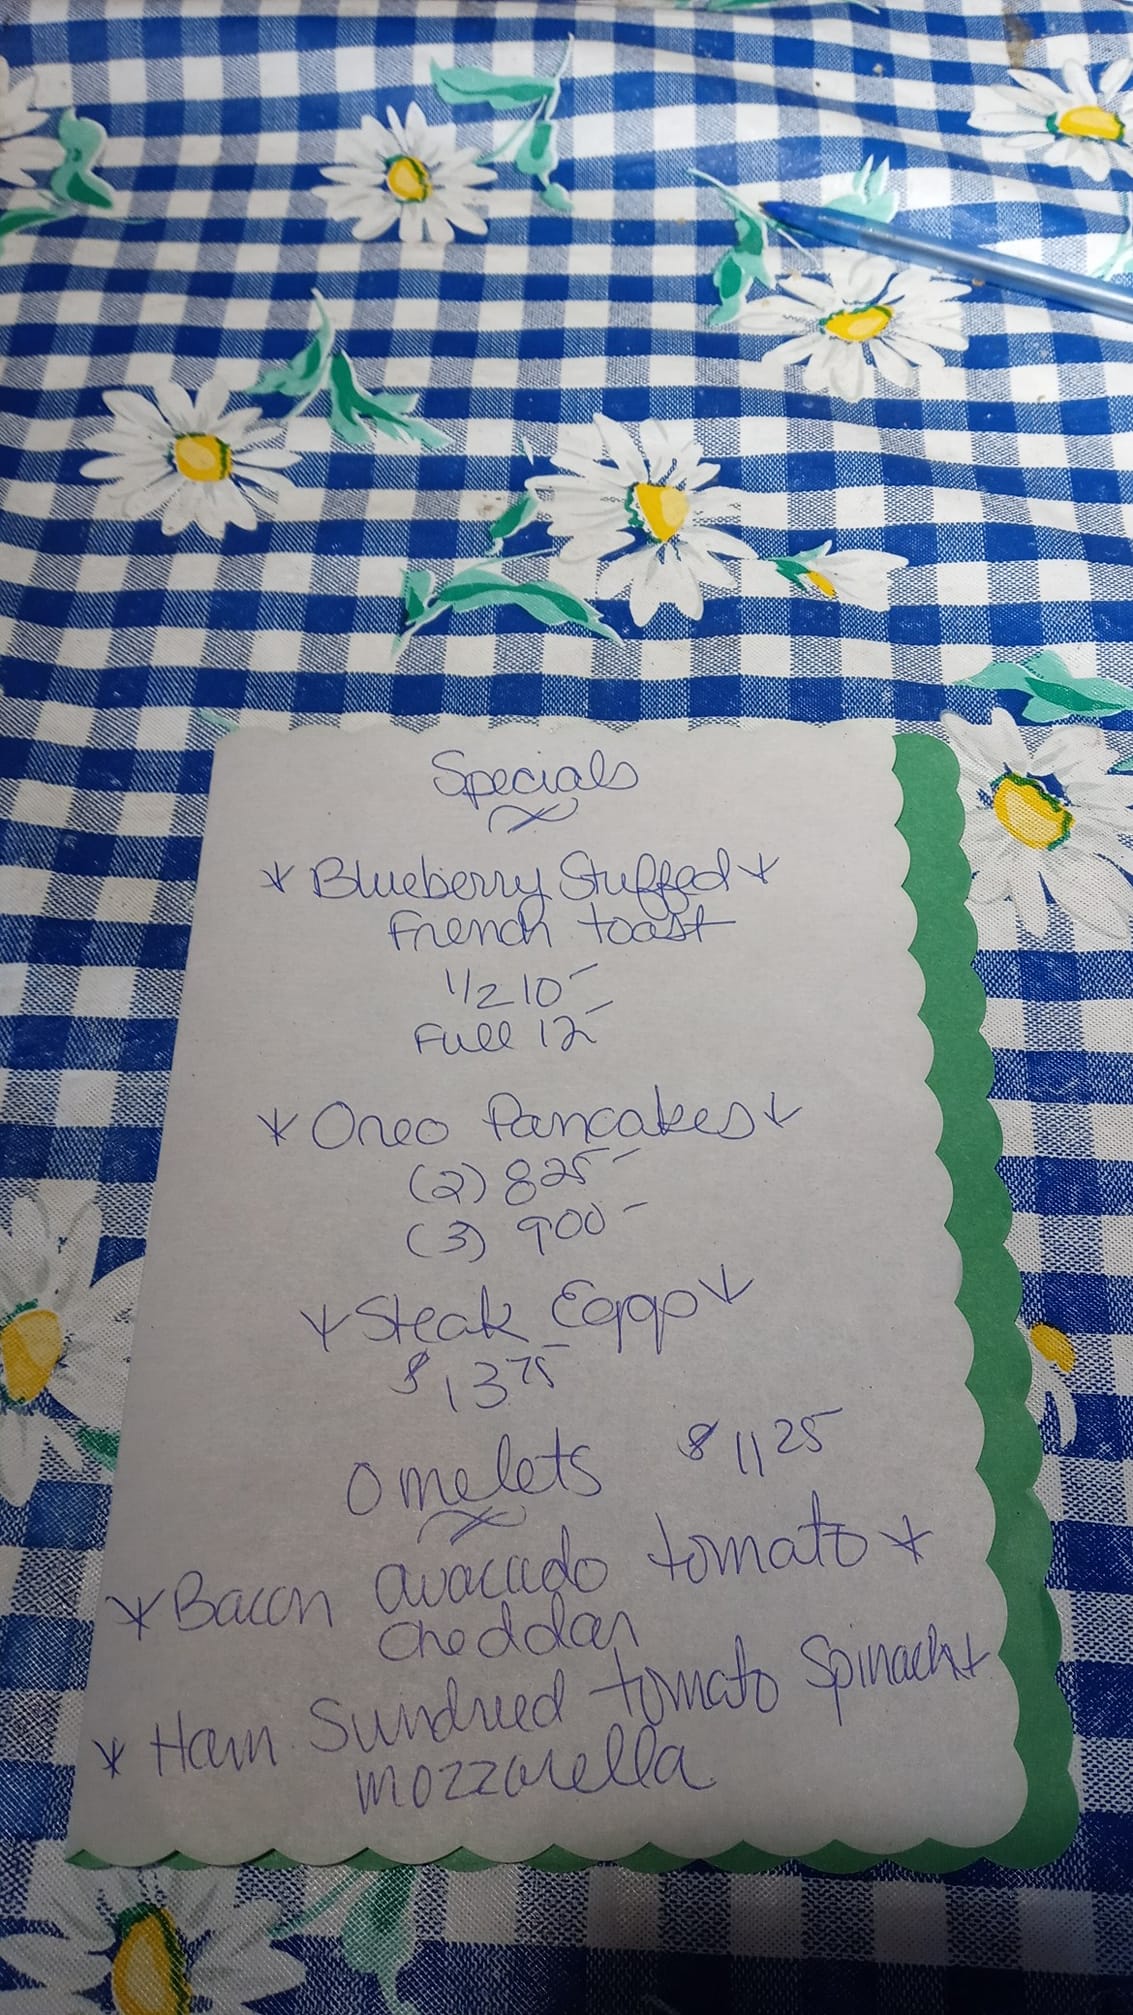 Specials
* Blueberry Stuffed *
French toast
1/2 10-
Full 12-
* Oreo Pancakes *
(2) 825-
(3) 900-
* Steak Eggs *
$ 13.75
Omelets $ 11 25
* Bacon avacudo tomato *
cheddar
* Ham Sundried tomato Spinach *
mozzarella